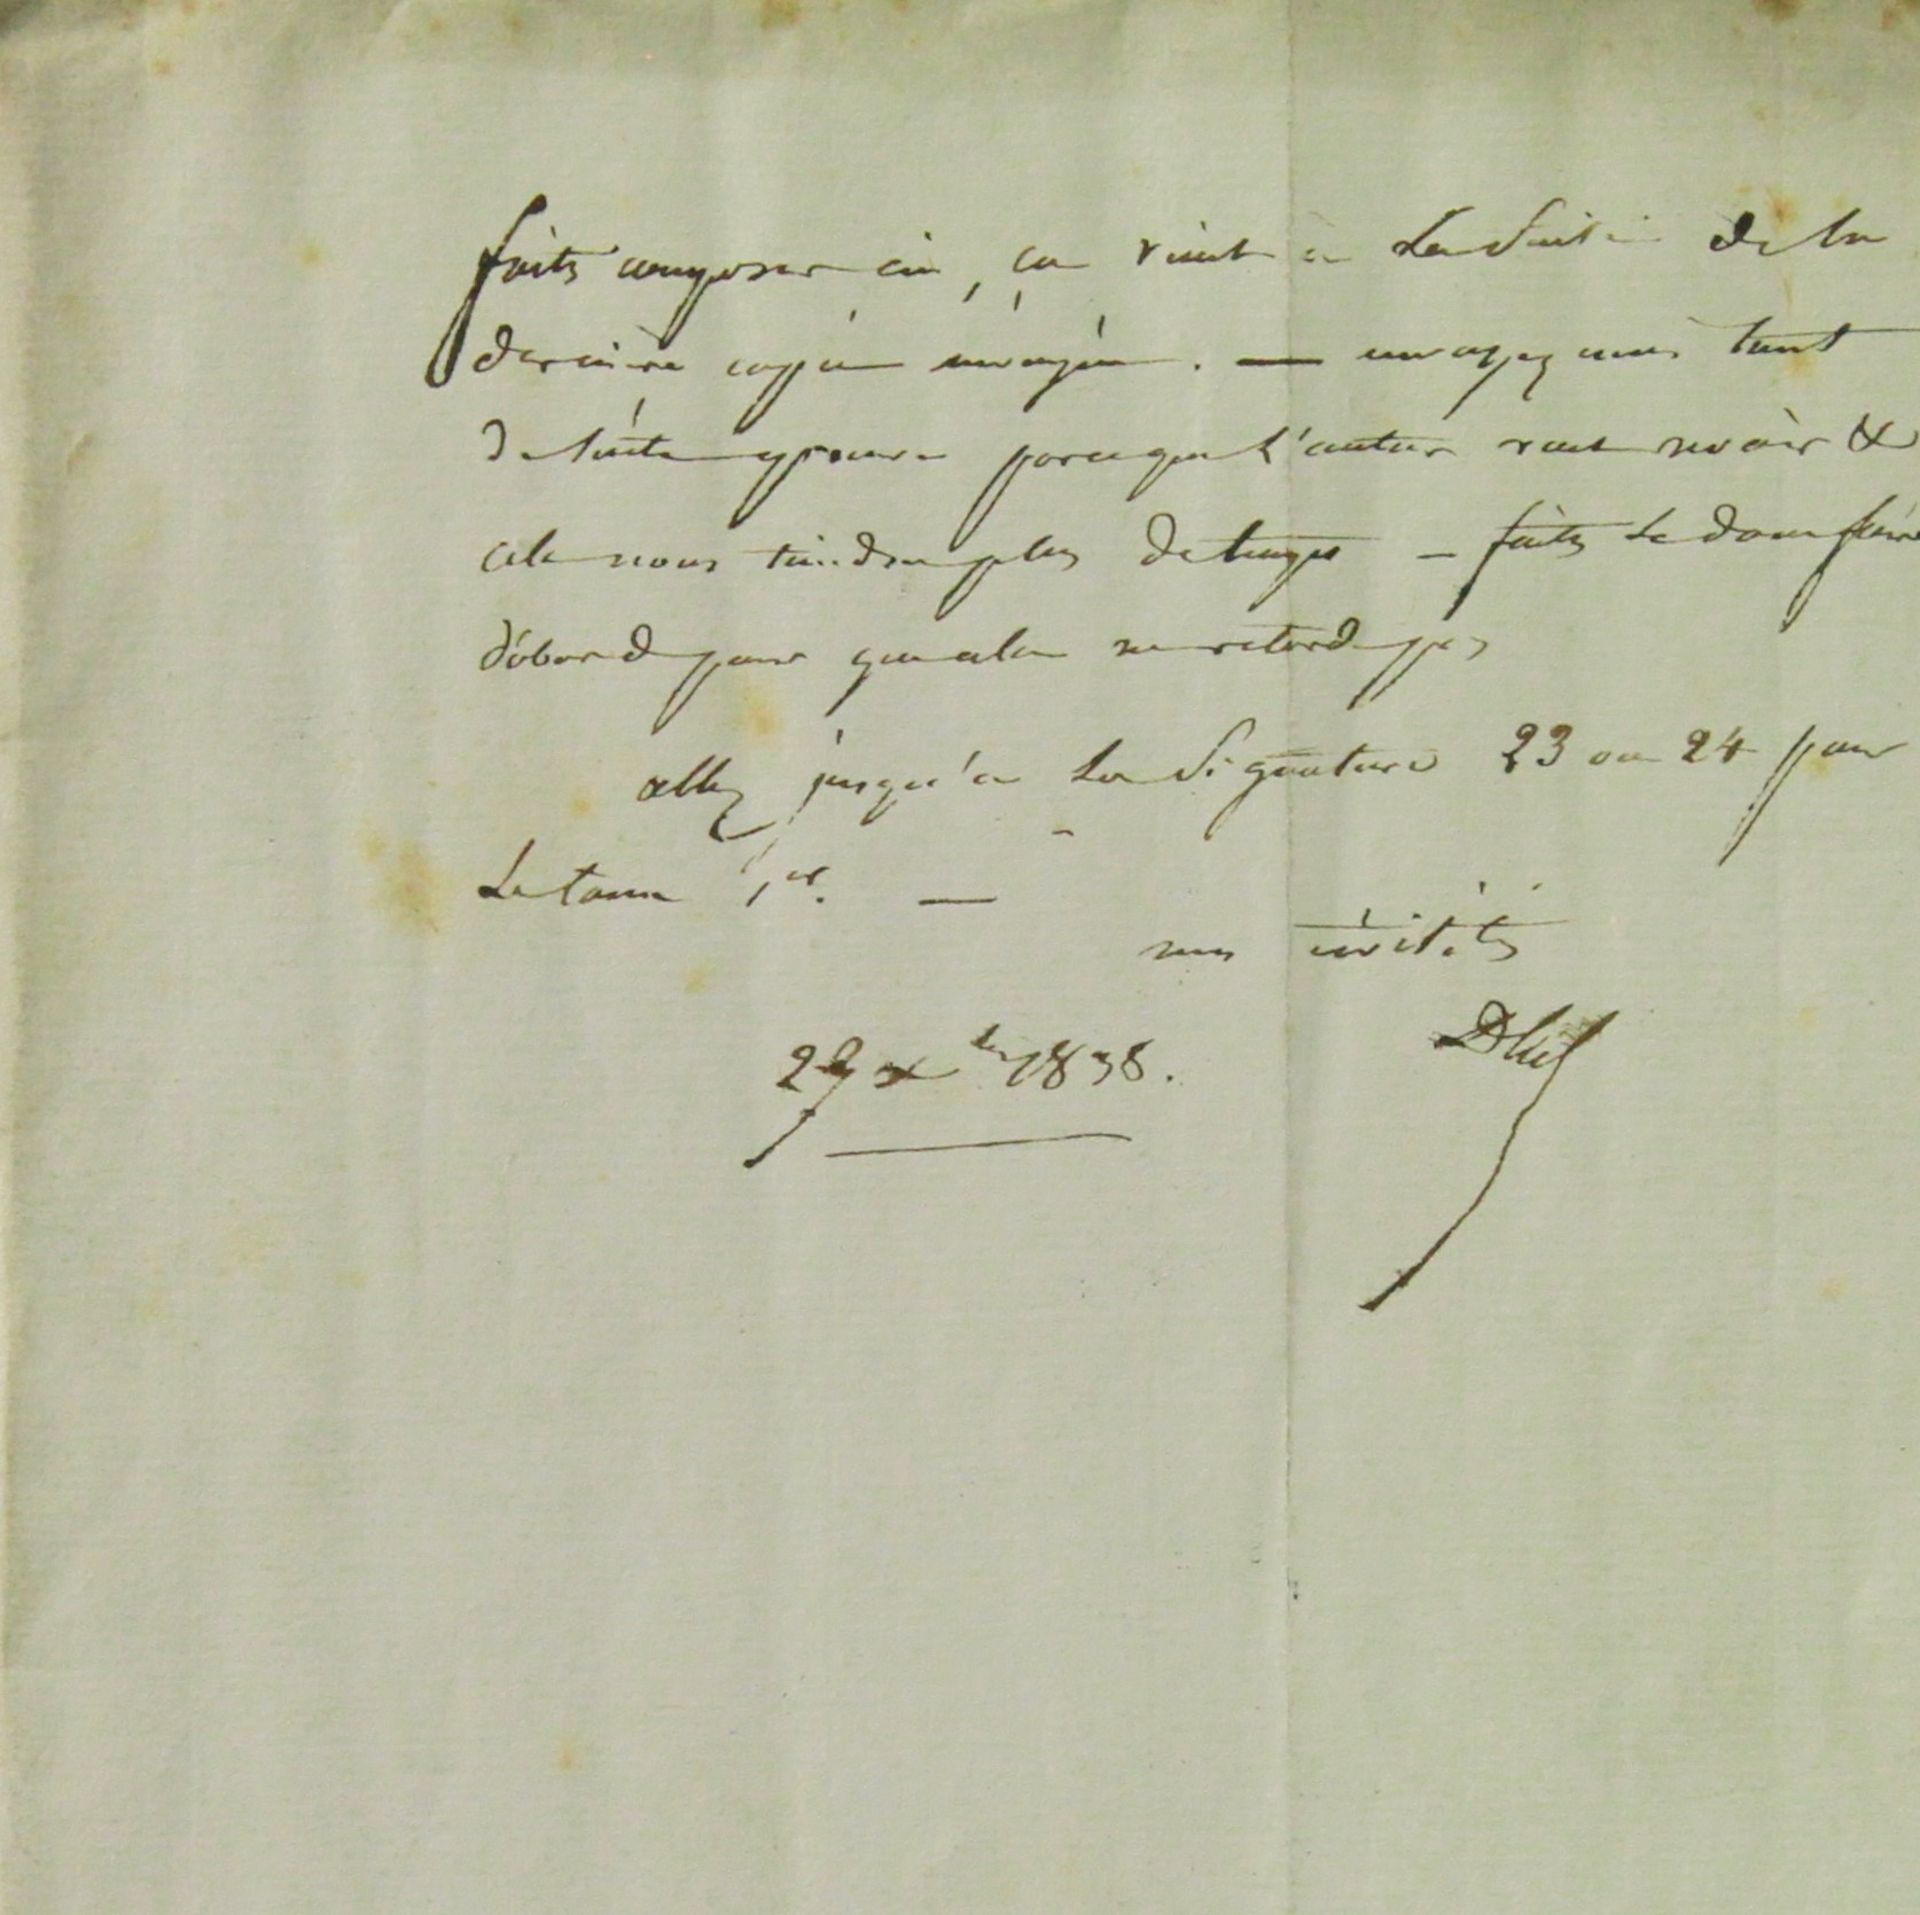 faites composer ceci, ça vient à la suite de la
dernière copie envoyée. — envoyez nous tout
de suite épreuve parceque l'auteur veut revoir &
cela nous tiendra plus de temps — faites le donc faire
d'abord pour que cela ne retarde pas
allez jusqu'à la signature 23 ou 24 pour
le tome 1er. —
mes civilités
29 xbre 1838.